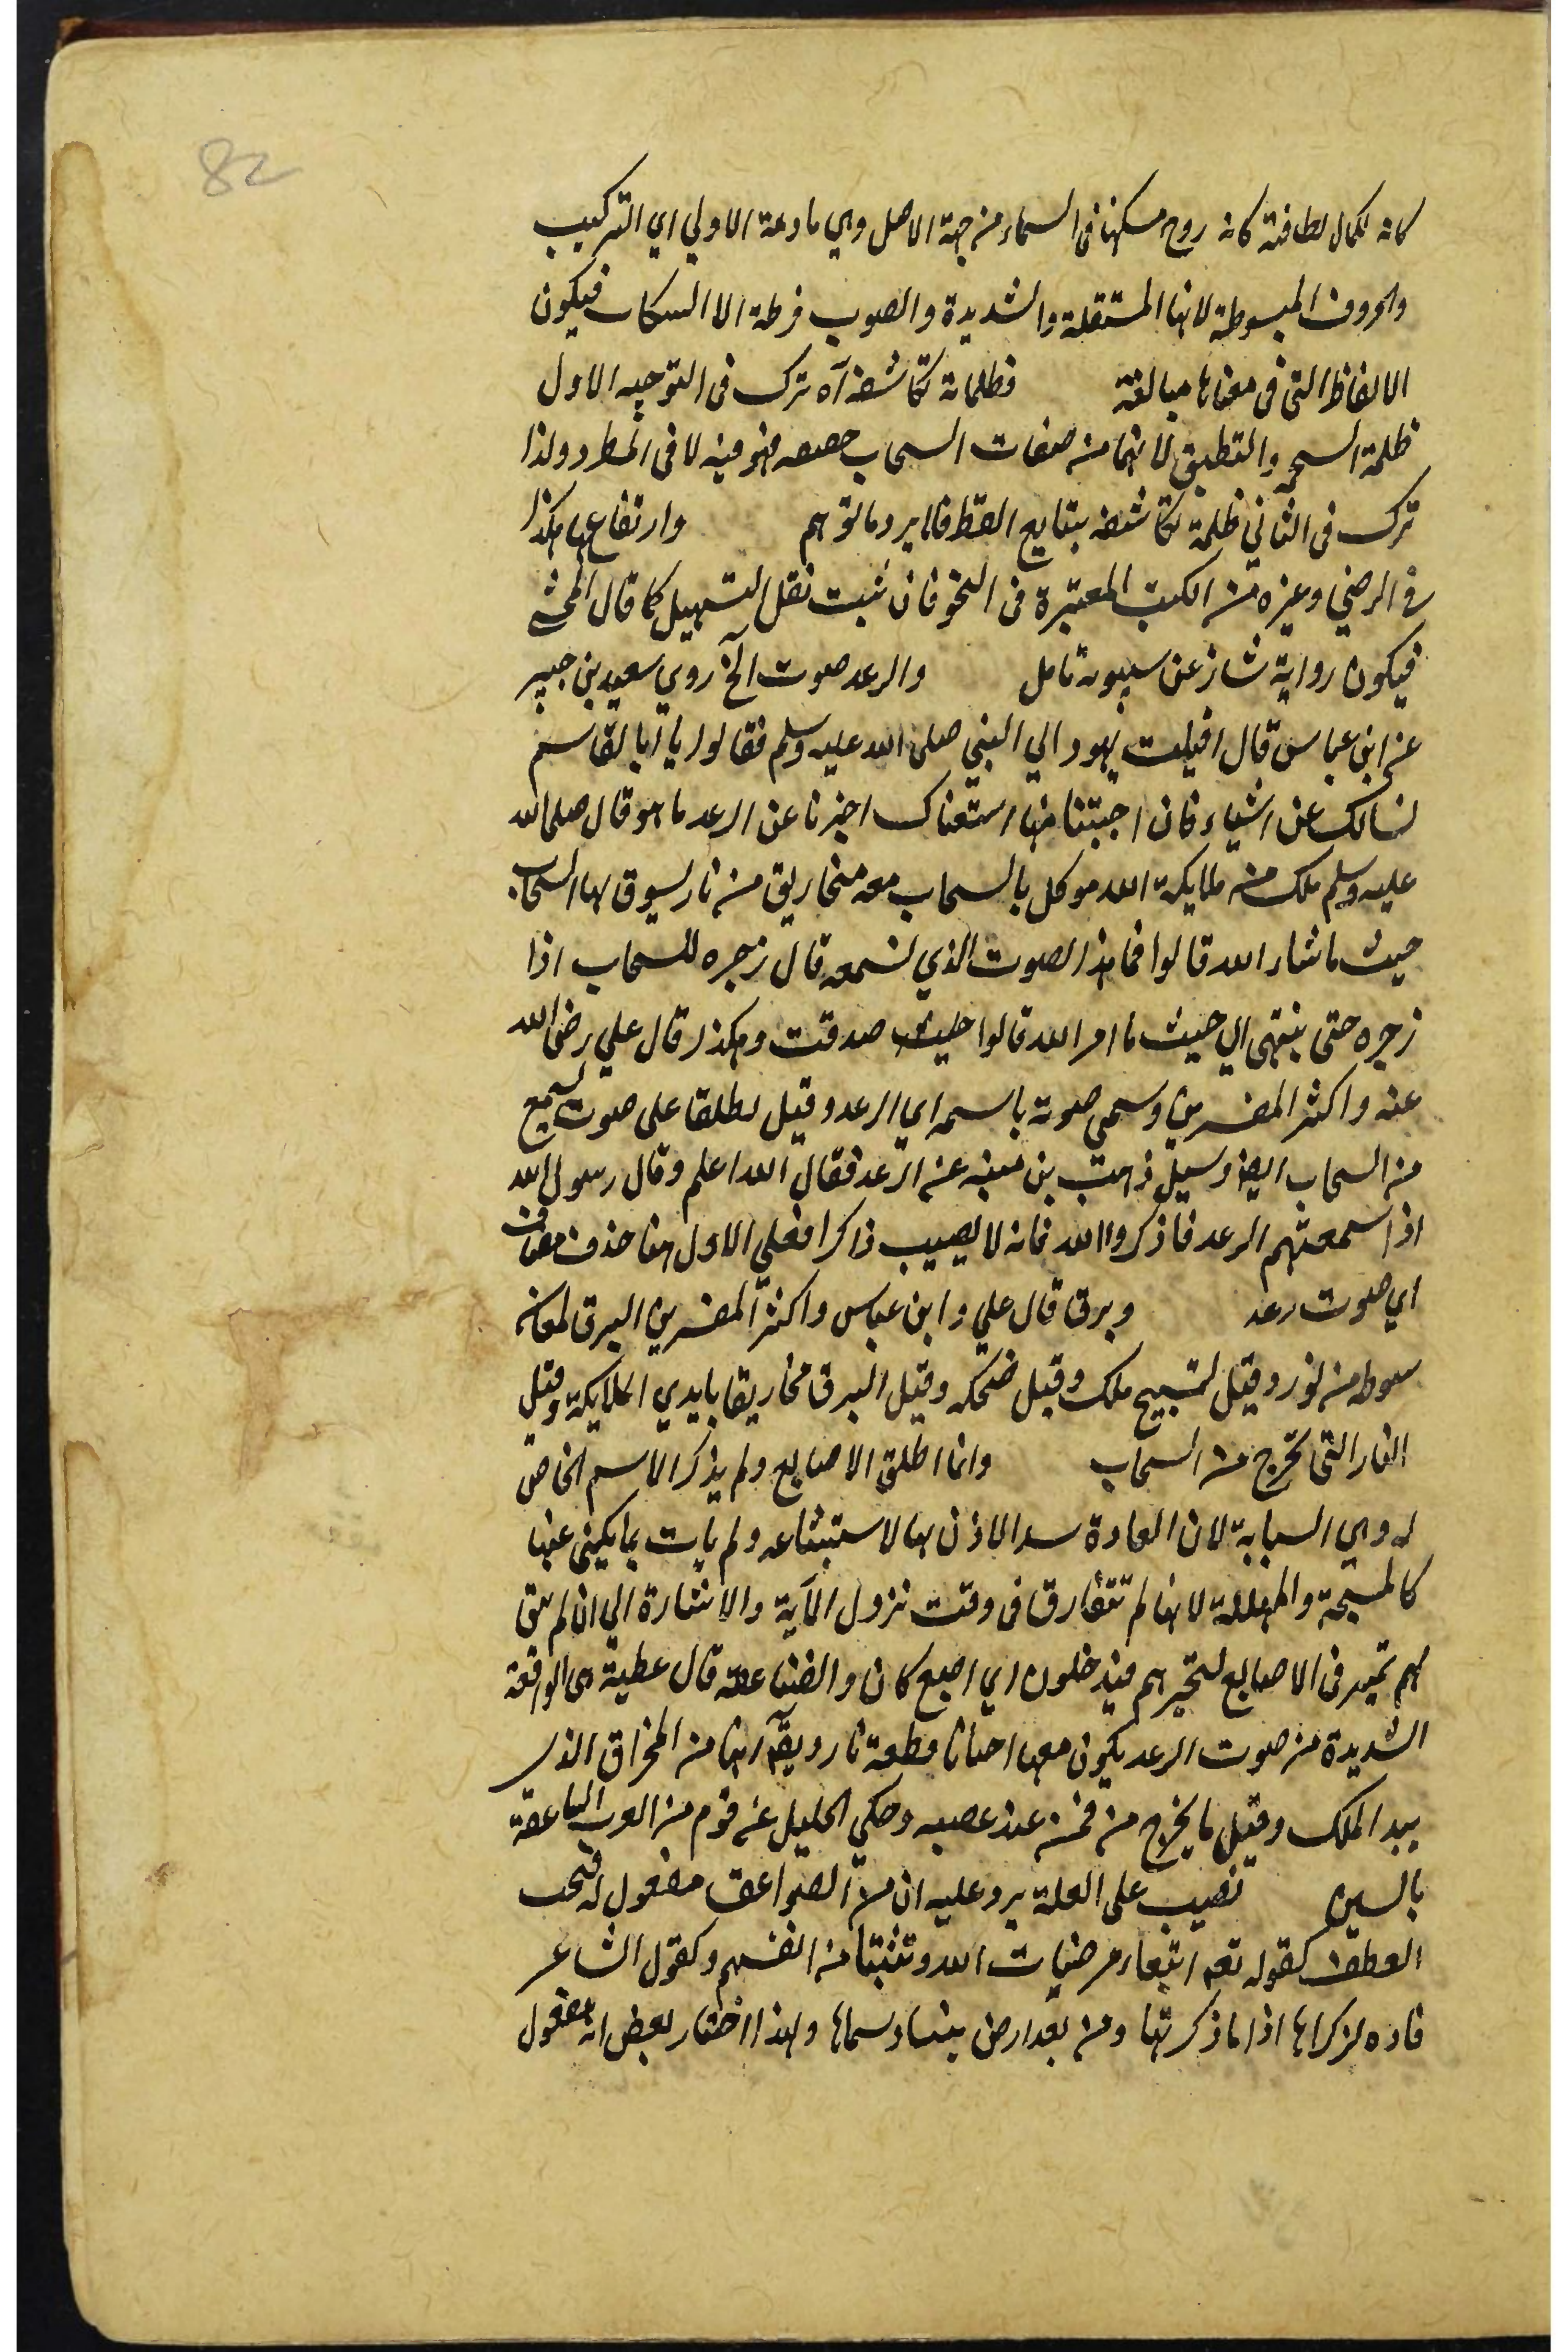 82
كانه لكمال لطافته كانه روح مسكنها فى السماء من جهة الاصل وهي مادعة الاولي اي التركيب
والحروف المبسوطة لانها المستقلة والشديدة والصوب فرطة الا السكاب فيكون
الالفاظ التى فى معناها مبالغة فظلماته تكاثفه آه ترك فى التوجيه الاول
ظلمة السحمه والتطبيق لانهما من صفات السحاب فهو فيه لا فى المطر ولذا
ترك فى الثاني ظلمة تكاثفه بتتابع القطر فلا يرد ما توهم وارتفاعها هكذا
فى الرضي وغيره من الكتب المعتبرة فى النحو فان ثبت نقل التسهيل كما قال المحشى
فيكون رواية شاذ عن سيبويه تامل والرعد صوت الخ روي سعيد بن جبير
عن ابن عباس قال اقبلت يهود الي النبي صلى الله عليه وسلم فقالوا يا ابا القاسم
نسالك عن اشياء فان اجبتنا فيها اتبعناك اخبرنا عن الرعد ما هو قال صلى الله
عليه وسلم ملك من ملايكة الله موكل بالسحاب معه مخاريق من نار يسوق بها السحاب
حيث ما شاء الله قالوا فما هذا الصوت الذي نسمعه قال زجره للسحاب اذا
زجره حتى ينتهى الي حيث ما امر الله قالوا صدقت وهكذا قال علي رضى الله
عنه واكثر المفسرين وسمي صوته باسمه اي الرعد وقيل يطلقا على صوت يسمع
من السحاب ايضا وسيل وهب بن منبه عن الرعد فقال الله اعلم وقال رسول الله
اذا سمعتهم الرعد فاذكروا الله فانه لا يصيب ذاكرا فعلي الاول هنا حذف مضاف
اي صوت رعد وبرق قال علي وابن عباس واكثر المفسرين البرق لمعانه
سوط من نور وقيل تسبيح ملك وقيل ضحكه وقيل البرق مخاريقا بايدي الملايكة وقيل
النار التى تخرج من السحاب وانما اطلق الاصابع ولم يذكر الاسم الخاص
له وهي السبابة لان العادة سد الاذن بها لاستبشاعه ولم يات بما يكنى عنها
كالمسبحة والمهللة لانها لم تتعارف فى وقت نزول الآية والاشارة الي ان لم يبق
لهم تميز فى الاصابع لتحيرهم فيدخلون اي اصبع كان والصاعقة قال عطية هى الواقعة
الشديدة من صوت الرعد يكون معها احيانا قطعة نار ويقال انها من المخراق الذي
بيد الملك وقيل ما يخرج من فمه عند غضبه وحكي الخليل عن قوم من العرب الساعقة
بالسين نصب على العلة يرد عليه ان من الصواعق مفعول له فيجب
العطف كقوله تعم ابتغاء مرضيات الله وتثبيتا من انفسهم وكقول الشاعر
فاده لذكراها اذا ما ذكرتها ومن بعد ارض بيننا وسماها ولهذا اختار بعض انه مفعول